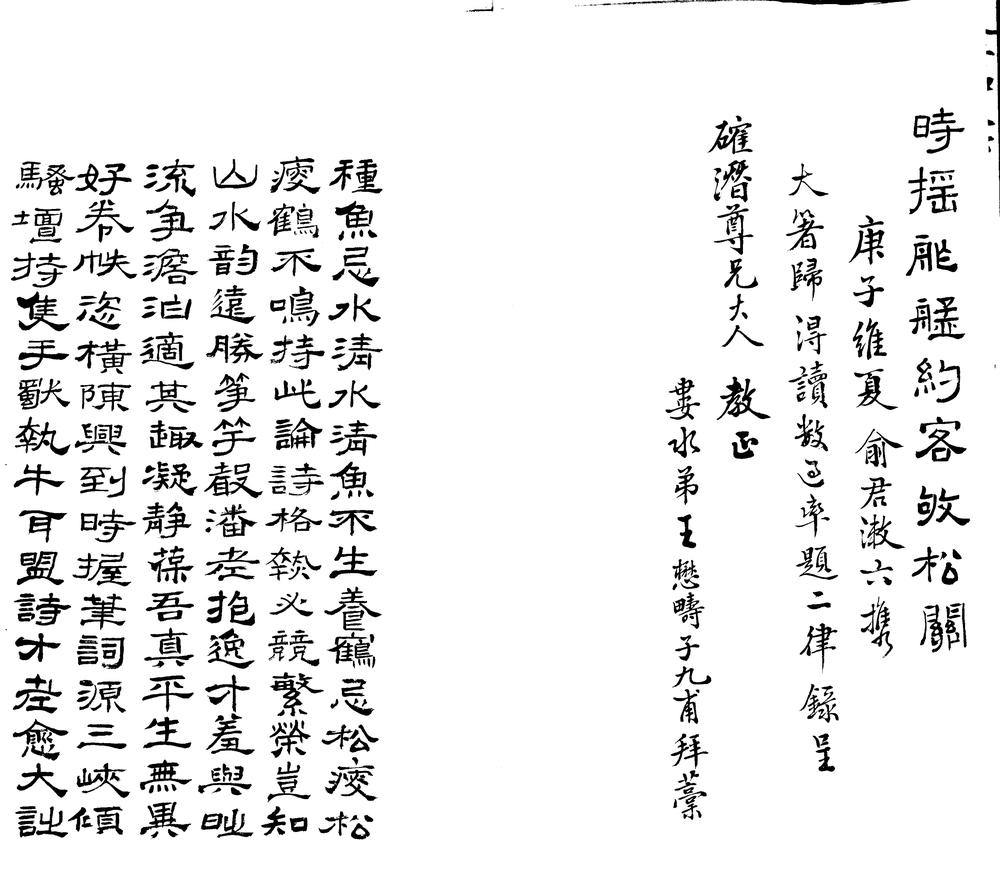 時摇舴艋約客敂松關
庚子維夏俞君潄六攜
大箸歸淂讀数過率題二律録呈
確潛尊兄大人教正
婁水弟王懋疇子九甫拜藁
種魚忌水清水清魚不生養鶴忌松瘦松
瘦鶴不鳴持此論詩格欵必競繁榮豈知
山水韵遠勝箏竽聲潘老抱逸才羞與時
流争澹泊適其趣凝静葆吾真平生無異
好卷帙恣橫陳興到時握筆詞源三峽傾
騷壇持隻手獸執牛耳盟詩才老愈大詎